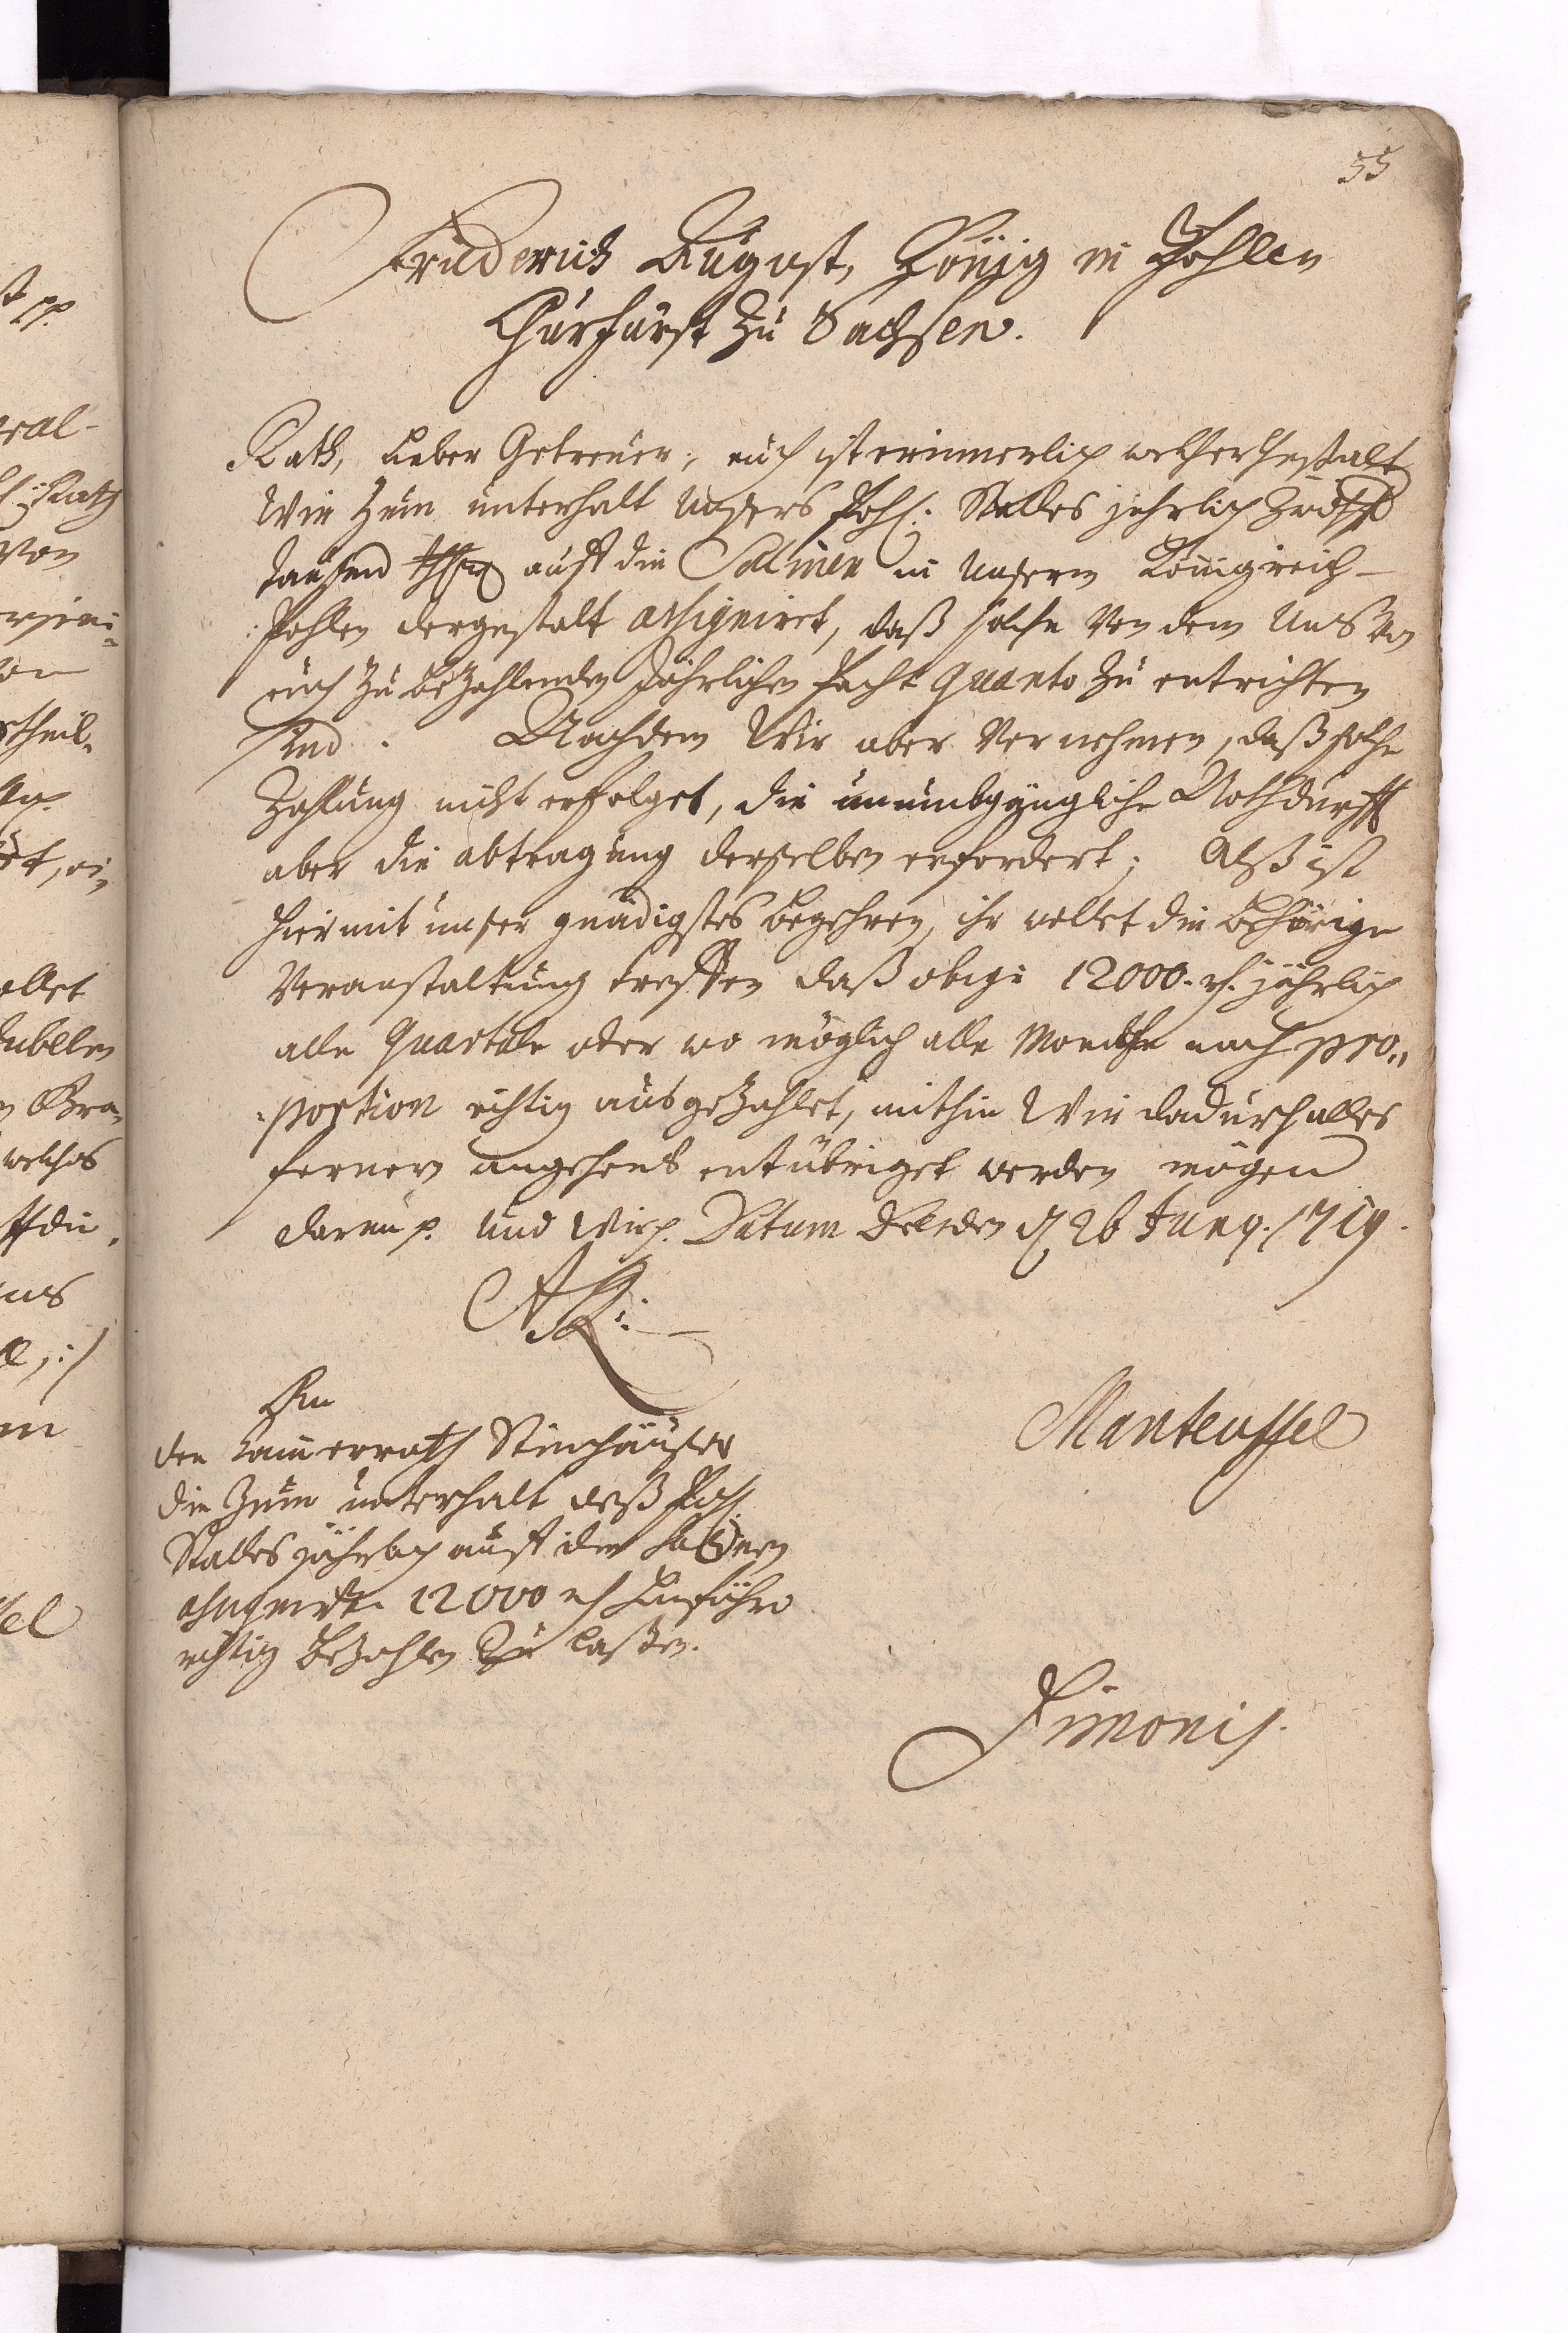 55
Friederich August, König in Pohlen
Churfürst zu Sachsen.
Rath, Lieber Getreuer, euch ist erinnerlich welchergestalt
Wir zum unterhalt Unsers Pohl: Stalles jehrlich Zwölff
tausend thlr auff die Salinen in Unserm Königreich
Pohlen dergestalt assigniret, daß solche von dem Uns von
euch zu bezahlenden Jährlichen Pacht quanto zu entrichten
sind. Nachdem Wir aber vernehmen, daß solche
Zahlung nicht erfolget, die unumbgängliche Nothdurfft
aber die abtragung derselben erfordert; Alß ist
hiermit unser gnädigstes begehren, ihr wollet die behörige
Veranstaltung treffen daß obige 12000. rh. jährlich
alle Quartale oder wo möglich alle Monathe nach pro„
portion richtig ausgezahlet, mithin Wir dadurch alles
fernern angehens entübriget werden mögen
daran p. und Wir p. Datum Dresden d 26 Junij. 1719.
AR:
An
den Cammerrath Steinhäuser
die zum unterhalt deß Pohl.
Stalles jährlich auff die Salinen
assignirte 12000 rh hinführo
richtig bezahlen zu laßen.
Manteuffel
Simonis.
st pp.
ral-
Rath
von
theil.
ollet
welches
ff die
uns